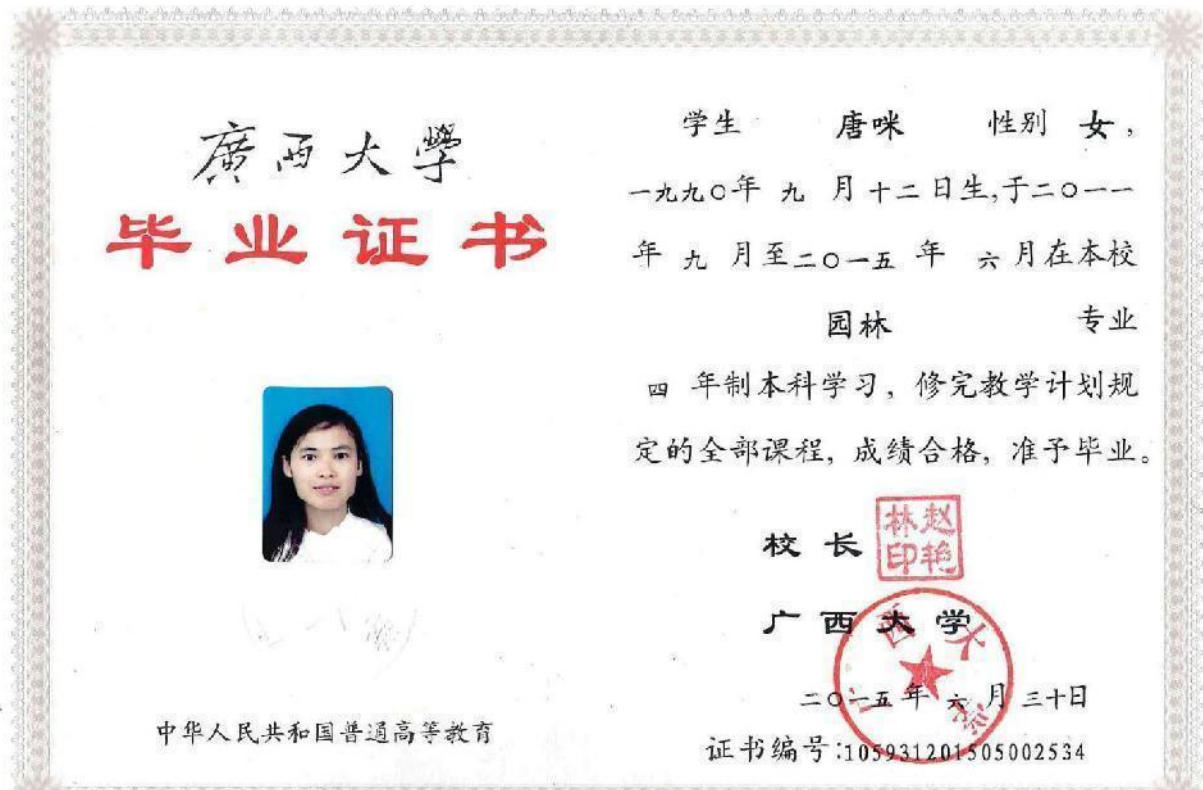 廣西大學
毕业证书
中华人民共和国普通高等教育
学生 唐咪 性别 女，
一九九〇年 九 月十二日生,于二〇一一
年 九 月至二〇一五 年 六 月在本校
园林 专业
四 年制本科学习，修完教学计划规
定的全部课程，成绩合格，准予毕业。
校 长
赵艳林印
广 西 大 学
广西大学
二〇一五 年 六 月 三十日
证书编号:105931201505002534